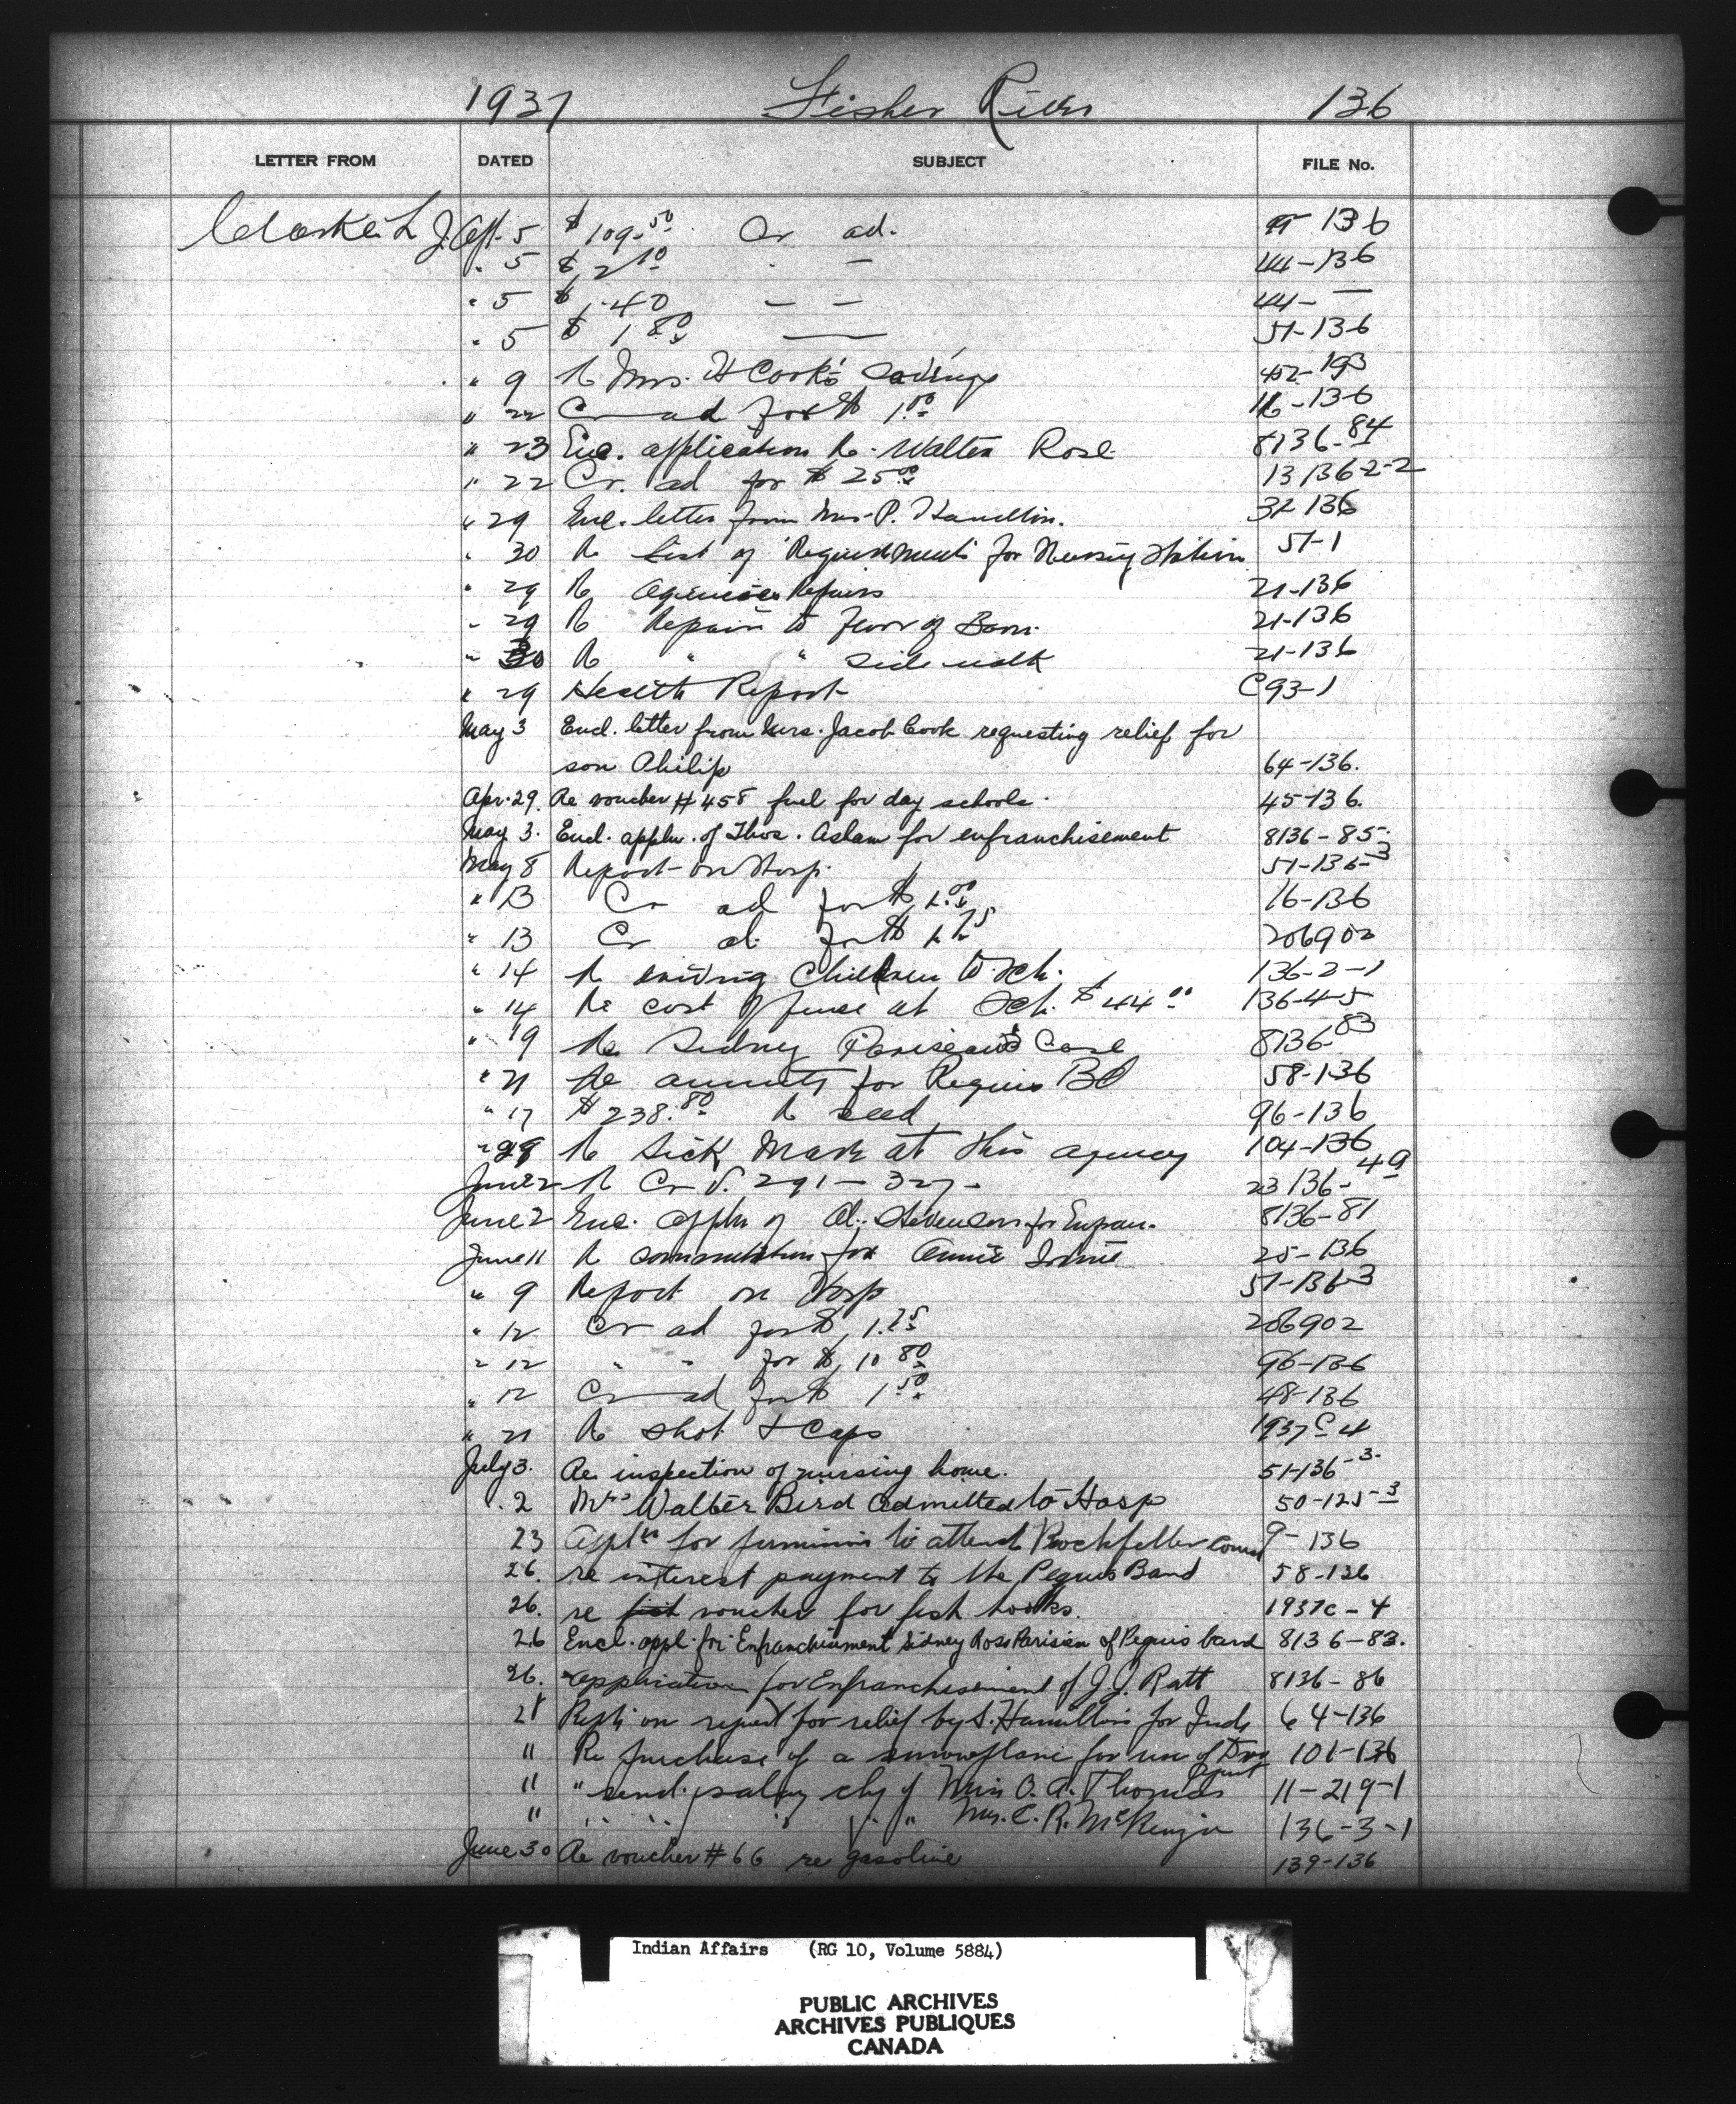 1937 Fisher River 136
LETTER FROM DATED SUBJECT FILE No.
Clarke L J. Apl. 5 $109.50 Cr ad. 136
" 5 $ 2.10 " — 44-136
" 5 $ 1.40 — — 44- —
" 5 $ 1.80 —— 51-136
" 9 Re Mrs. H Cook's savings 42-193
" 22 Cr ad for $ 1.00 16-136
" 23 Enc. application Re. Walter Rose 8136-84
" 22 Cr. ad for $ 25.00 13136-2-2
" 29 Enc. letter from Mrs. P. Hamilton. 32-136
" 30 Re List of Requirements for Nursing Station 51-1
" 29 Re Agencies Repairs 21-136
" 29 Re Repairs to floor of Barn. 21-136
" 30 Re " " side walk 21-136
" 29 Health Report C93-1
May 3 Encl. letter from Mrs. Jacob Cook requesting relief for
son Philip 64-136.
Apr. 29. Re voucher #458 fuel for day schools. 45-136.
May 3. Encl. appln. of Thos. Aslam for enfranchisement 8136-85.
May 8 Report on Hosp. 51-136-3
" 13 Cr ad for $ 16-136
" 13 Cr ad. for $ 206902
" 14 Re driving Children to Sch. 136-2-1
" 14 Re cost of fence at Sch. $44.00 136-4-5
" 19 Re Sidney Parisean's Case 8136-83
" 21 Re annuity for Peguis Bd 58-136
" 17 $238.80 Re seed 96-136
" 29 Re Sick Mare at this agency 104-136
June 2 Re Cr V. 291 - 327 - 23136-49
June 2 Enc. appln of Al. Stevenson for Enfran. 8136-81
June 11 Re commutation for Annie Irvine 25-136
" 9 Report on Hosp 51-136-3
" 12 Cr ad for $ 1.25 206902
" 12 " " for $ 10.80 96-136
" 12 Cr ad for $ 1.50 48-136
" 21 Re shot & Caps 1937 C 4
July 3. Re. inspection of nursing home. 51-136-3.
" 2 Mrs Walter Bird admitted to Hosp 50-125-3
23 Appl'n for permission to attend Rockfeller course 9-136
26. re interest payment to the Peguis Band 58-136
26. re fish voucher for fish hooks. 1937c-4
26 Encl. appl. for Enfranchisement Sidney Ross Parisien of Peguis band 8136-83.
26. application for Enfranchisement of J.J. Ratt 8136-86
28 Reply on request for relief by S. Hamilton for Inds 64-136
" Re purchase of a snowplane for use of Drug 101-136
" " send. salary chq of Miss O. A. Thomas 11-219-1
" " " " " Mrs. C. R. McKenzie 136-3-1
June 30 Re voucher #66 re gasoline 139-136
Indian Affairs (RG 10, Volume 5884)
PUBLIC ARCHIVES
ARCHIVES PUBLIQUES
CANADA